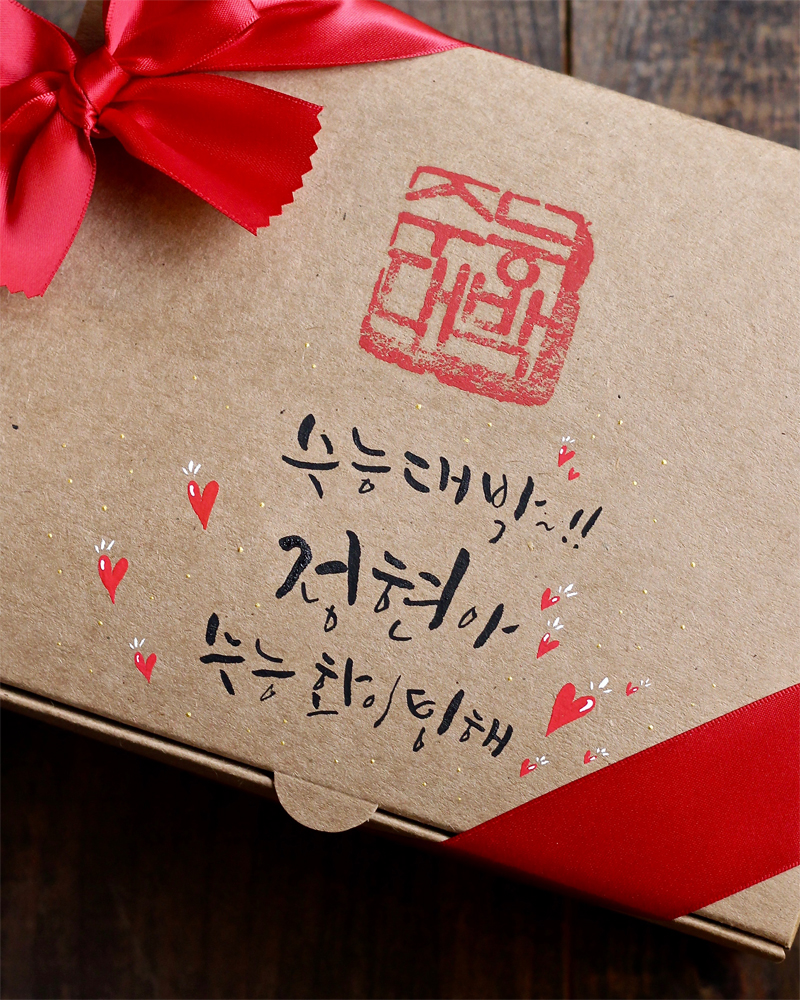 수능
대박
수능대박~!!
정현아
수능 화이팅해